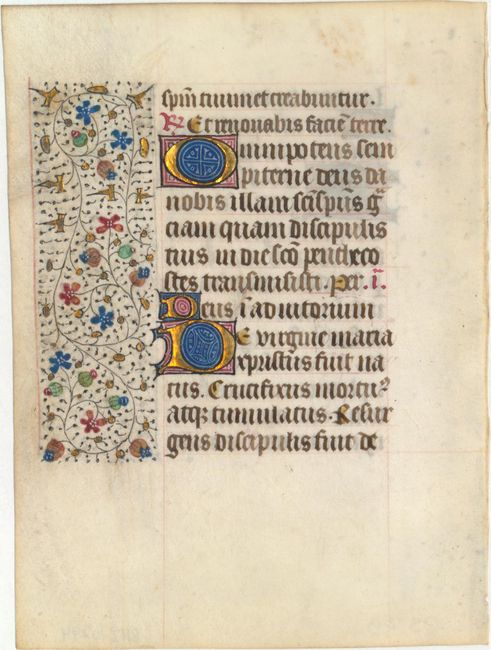 spm̄ tuum et creabuntur.
R̸ Et renouabis faciē terre.
Omnipotens sem
piterne deus da
nobis illam scīspūs grā
ciam quam discipulis
tuis in die scō penthco
stes transmisisti. Per. i.
Deus ī adiutorium
De virgine maria
xp̄ristus fuit na
tus. Crucifixus mortuꝰ
atqꝫ tumulatus. Resur
gens discipulis fuit de